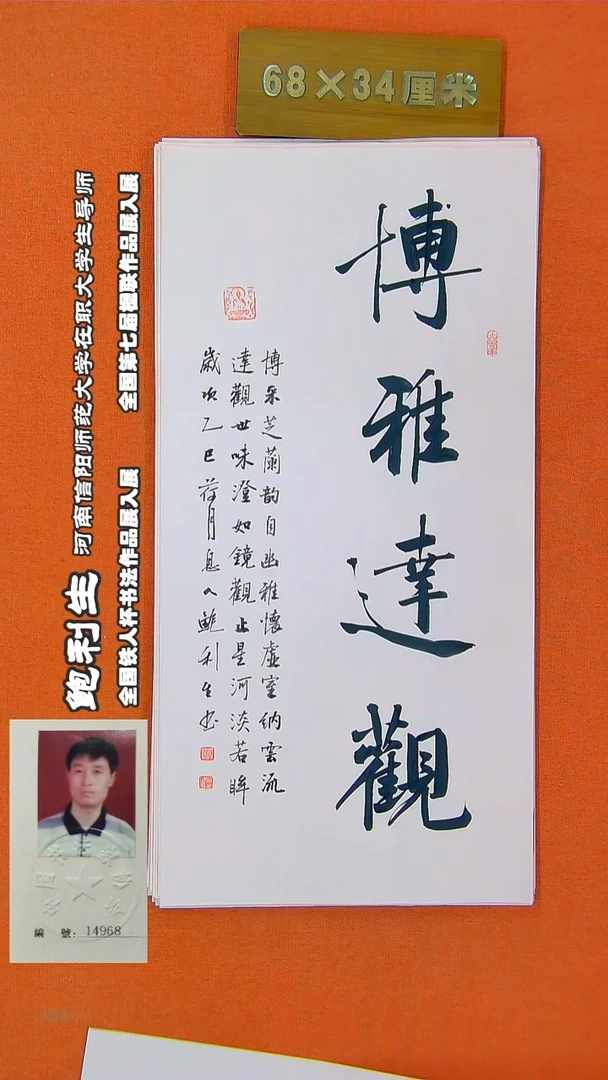 68×34厘米
博雅達觀
博采芝蘭韵自幽雅懷虛室納雲流
達觀世味澄如鏡觀止星河淡若眸
歲次乙巳荷月息人鮑利生书
鲍利生 河南信阳师范大学在职大学生导师
全国铁人杯书法作品展入展 全国第七届楹联作品展入展
編 號：14968